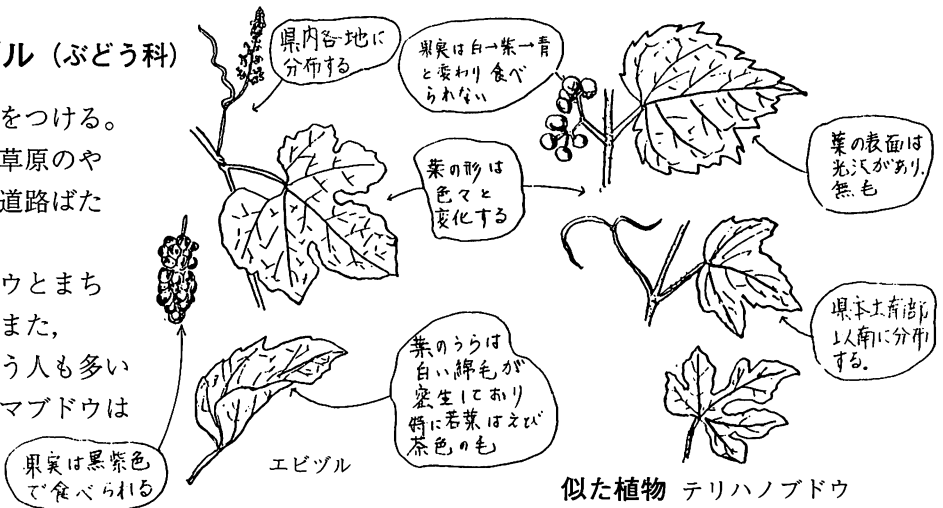 ル（ぶどう科）
をつける。
草原のや
道路ばた
ウとまち
また，
う人も多い
マブドウは
県内各地に
分布する
果実は白→紫→青
と変わり食べ
られない
葉の形は
色々と
変化する
葉の表面は
光沢があり、
無毛
県本土南部
以南に分布
する。
葉のうらは
白い綿毛が
密生しており
特に若葉はえび
茶色の毛
果実は黒紫色
で食べられる
エビヅル
似た植物 テリハノブドウ